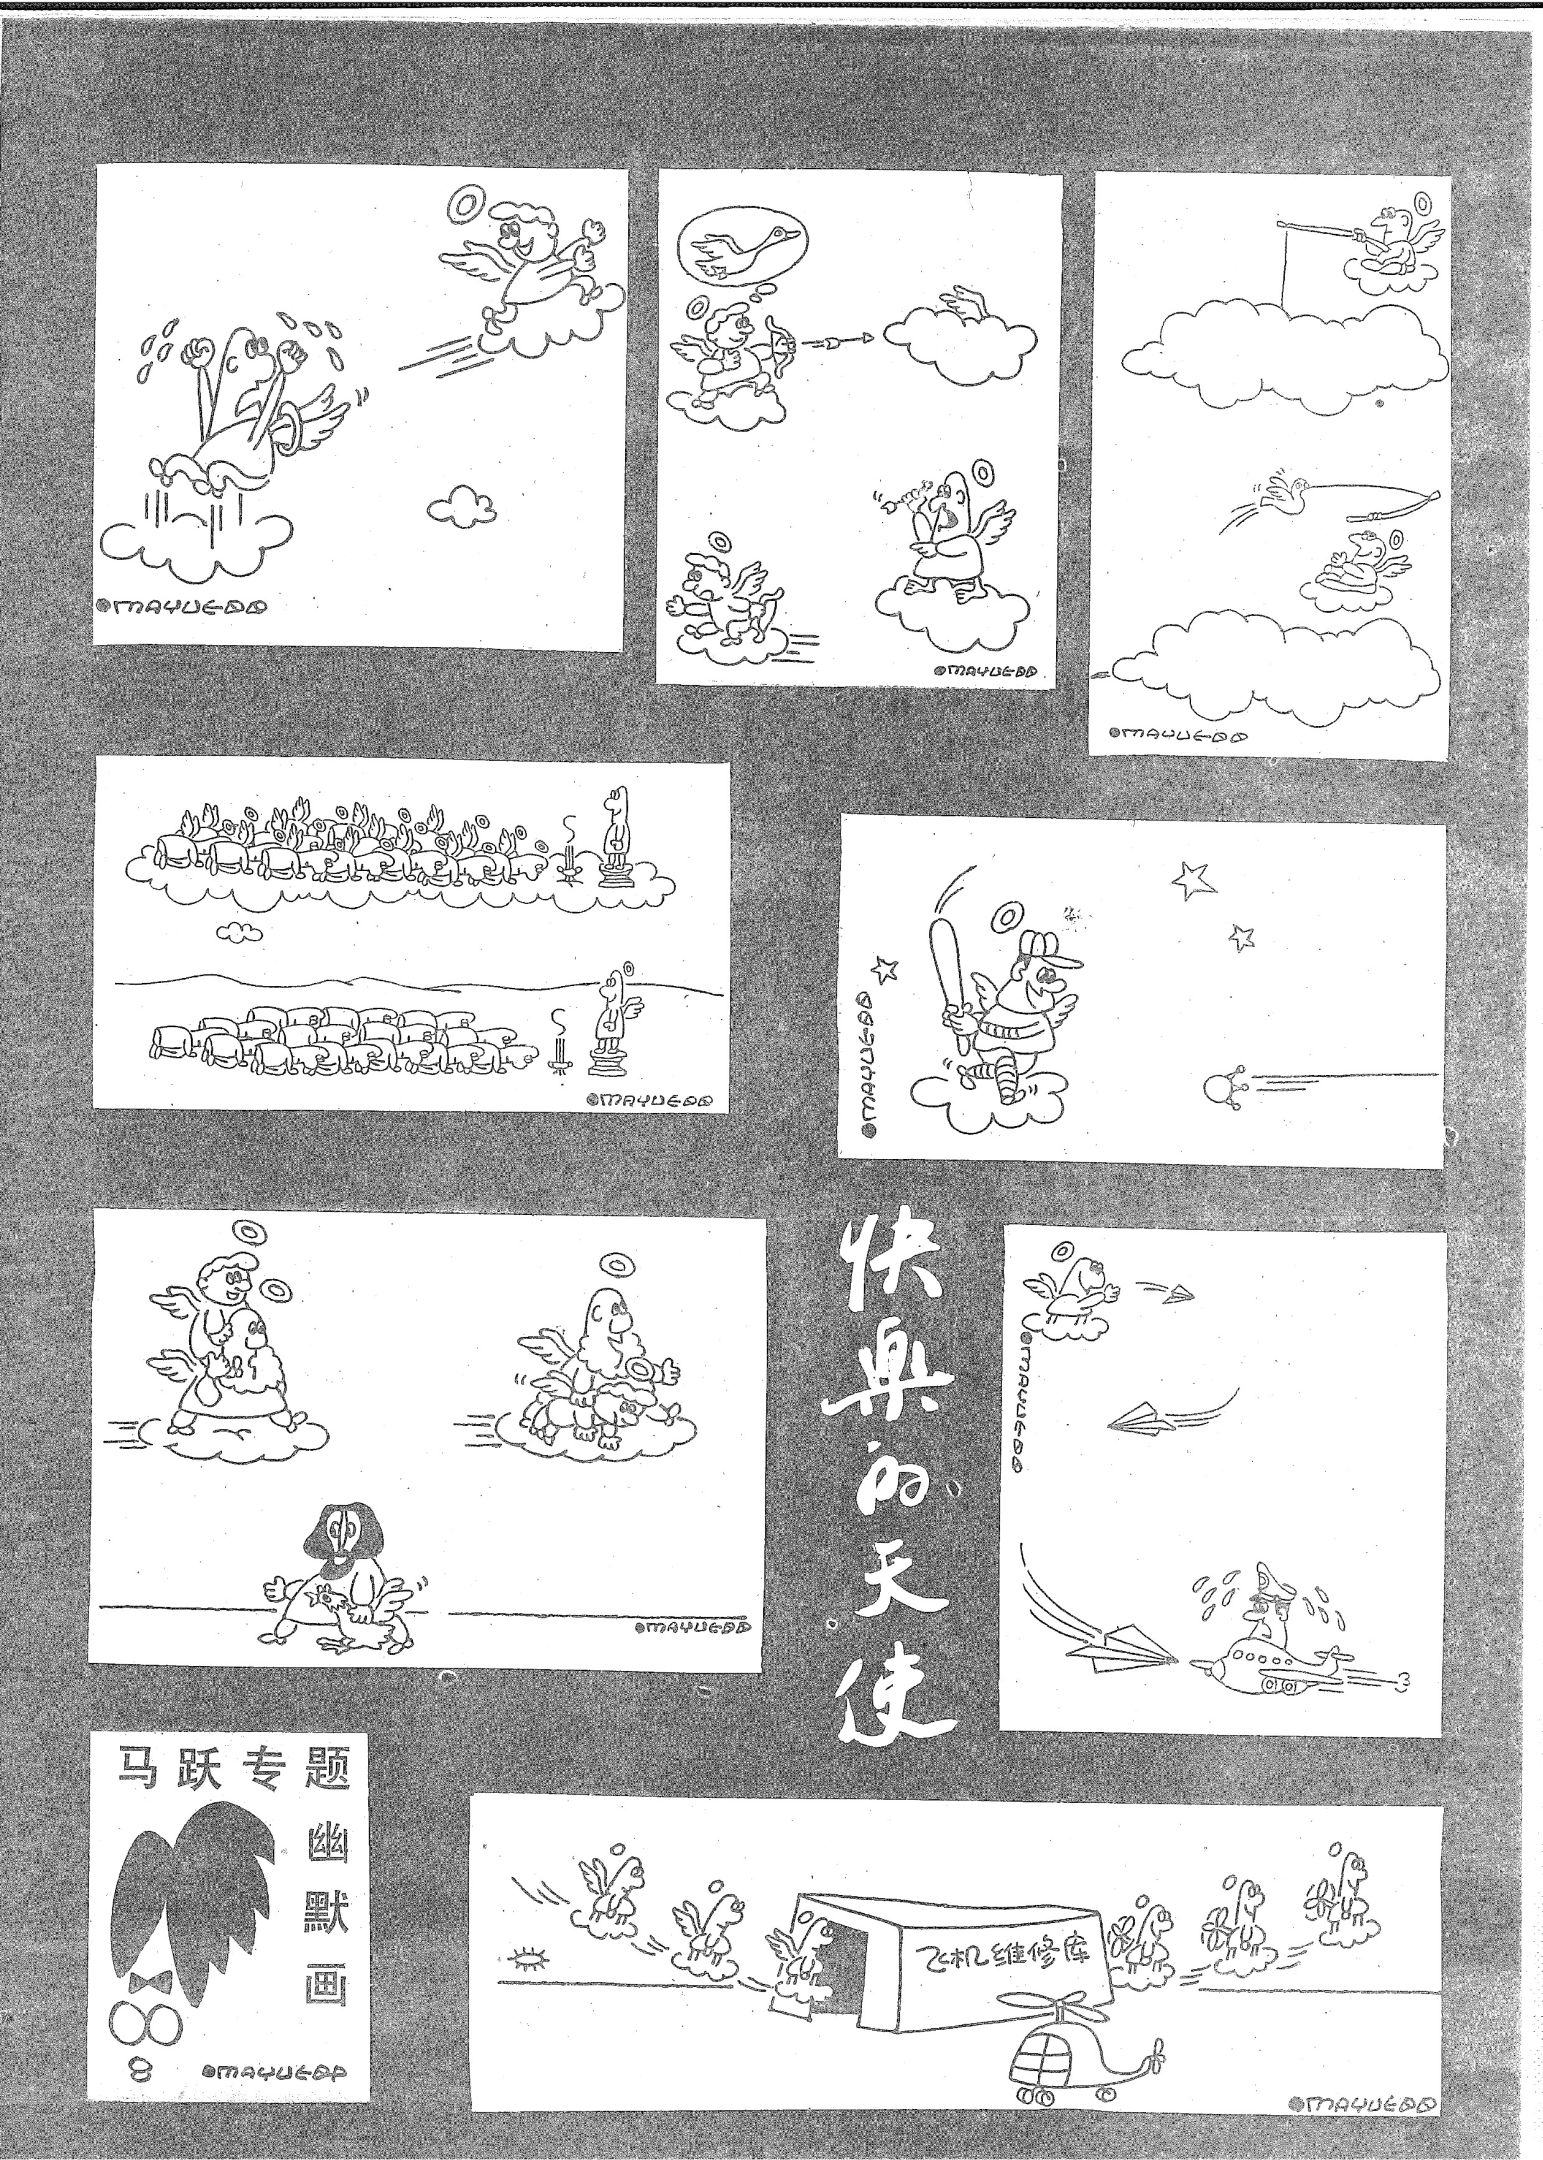 ●MAYUEDD
●MAYUEDD
●MAYUEDD
●MAYUEDD
●MAYUEDD
快乐的天使
●MAYUEDD
●MAYUEDD
马跃专题
幽默画
8
●MAYUEDD
飞机维修库
●MAYUEDD